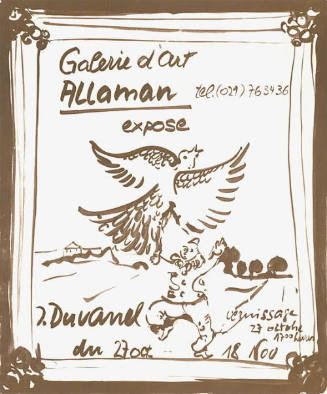 Galerie d'art
Allaman
tel. (021) 76 34 36
expose
J. Duvanel
vernissage
27 octobre
1700 heures
du 27 oct
18 Nov